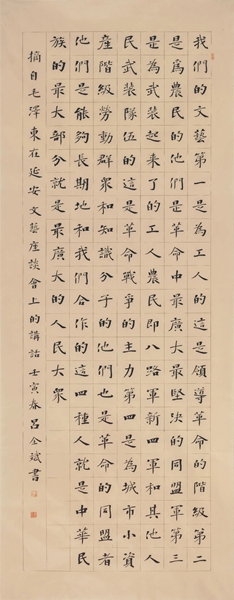 我們的文藝第一是為工人的這是領導革命的階級第二
是為農民的他們是革命中最廣大最堅决的同盟軍第三
是為武裝起來了的工人農民即八路軍新四軍和其他人
民武裝隊伍的這是革命戰爭的主力第四是為城市小資
產階級勞動群眾和知識分子的他們也是革命的同盟者
他們是能夠長期地和我們合作的這四種人就是中華民
族的最大部分就是最廣大的人民大眾
摘自毛澤東在延安文藝座談會上的講話壬寅春呂全斌書